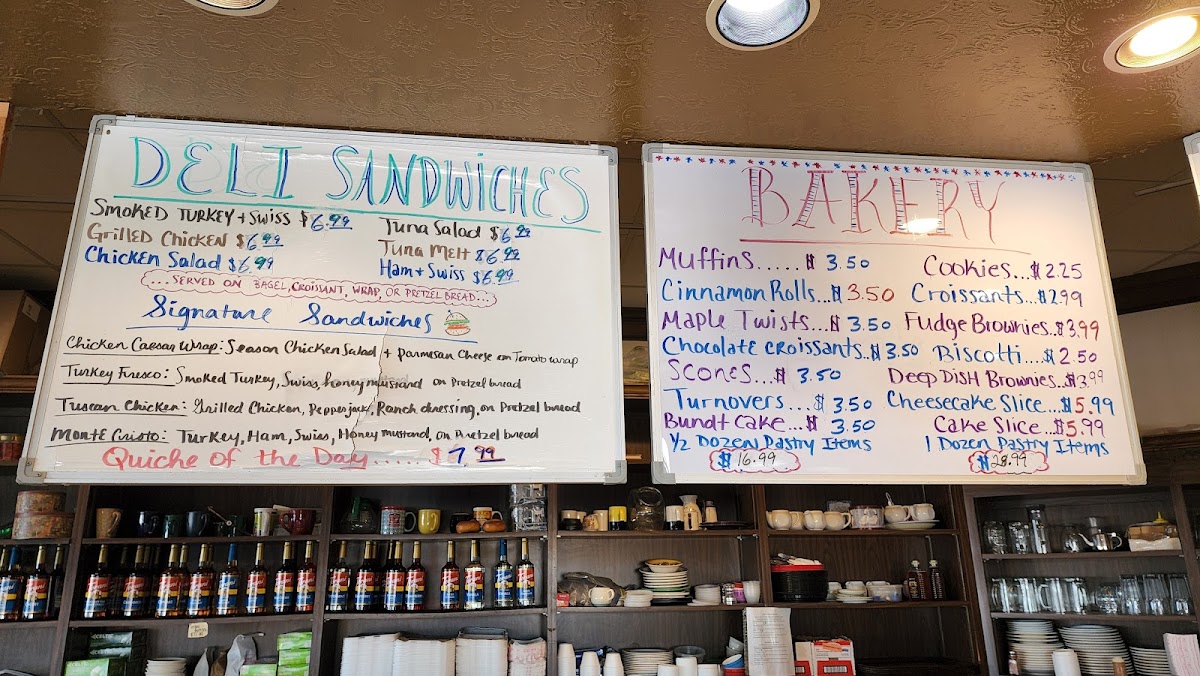 DELI SANDWICHES
SMOKED TURKEY + SWISS $6.99
GRILLED CHICKEN $6.99
Chicken Salad $6.99
Tuna Salad $6.99
Tuna Melt $6.99
Ham + Swiss $6.99
...SERVED ON BAGEL, CROISSANT, WRAP, OR PRETZEL BREAD...
Signature Sandwiches
Chicken Caesar Wrap: Season Chicken Salad + Parmesan Cheese on Tomato wrap
Turkey Fresco: Smoked Turkey, Swiss, honey mustard on Pretzel bread
Tuscan Chicken: Grilled Chicken, Pepperjack, Ranch dressing, on Pretzel bread
Monte Cristo: Turkey, Ham, Swiss, Honey mustard, on Pretzel bread
Quiche of the Day..... $7.99
BAKERY
Muffins..... $ 3.50
Cinnamon Rolls...$ 3.50
Maple Twists...$ 3.50
Chocolate Croissants..$ 3.50
Scones...$ 3.50
Turnovers...$ 3.50
Bundt Cake..$ 3.50
1/2 Dozen Pastry Items
$16.99
Cookies...$2.25
Croissants...$2.99
Fudge Brownies..$3.99
Biscotti...$2.50
Deep Dish Brownies..$3.99
Cheesecake Slice...$5.99
Cake Slice..$5.99
1 Dozen Pastry Items
$28.99